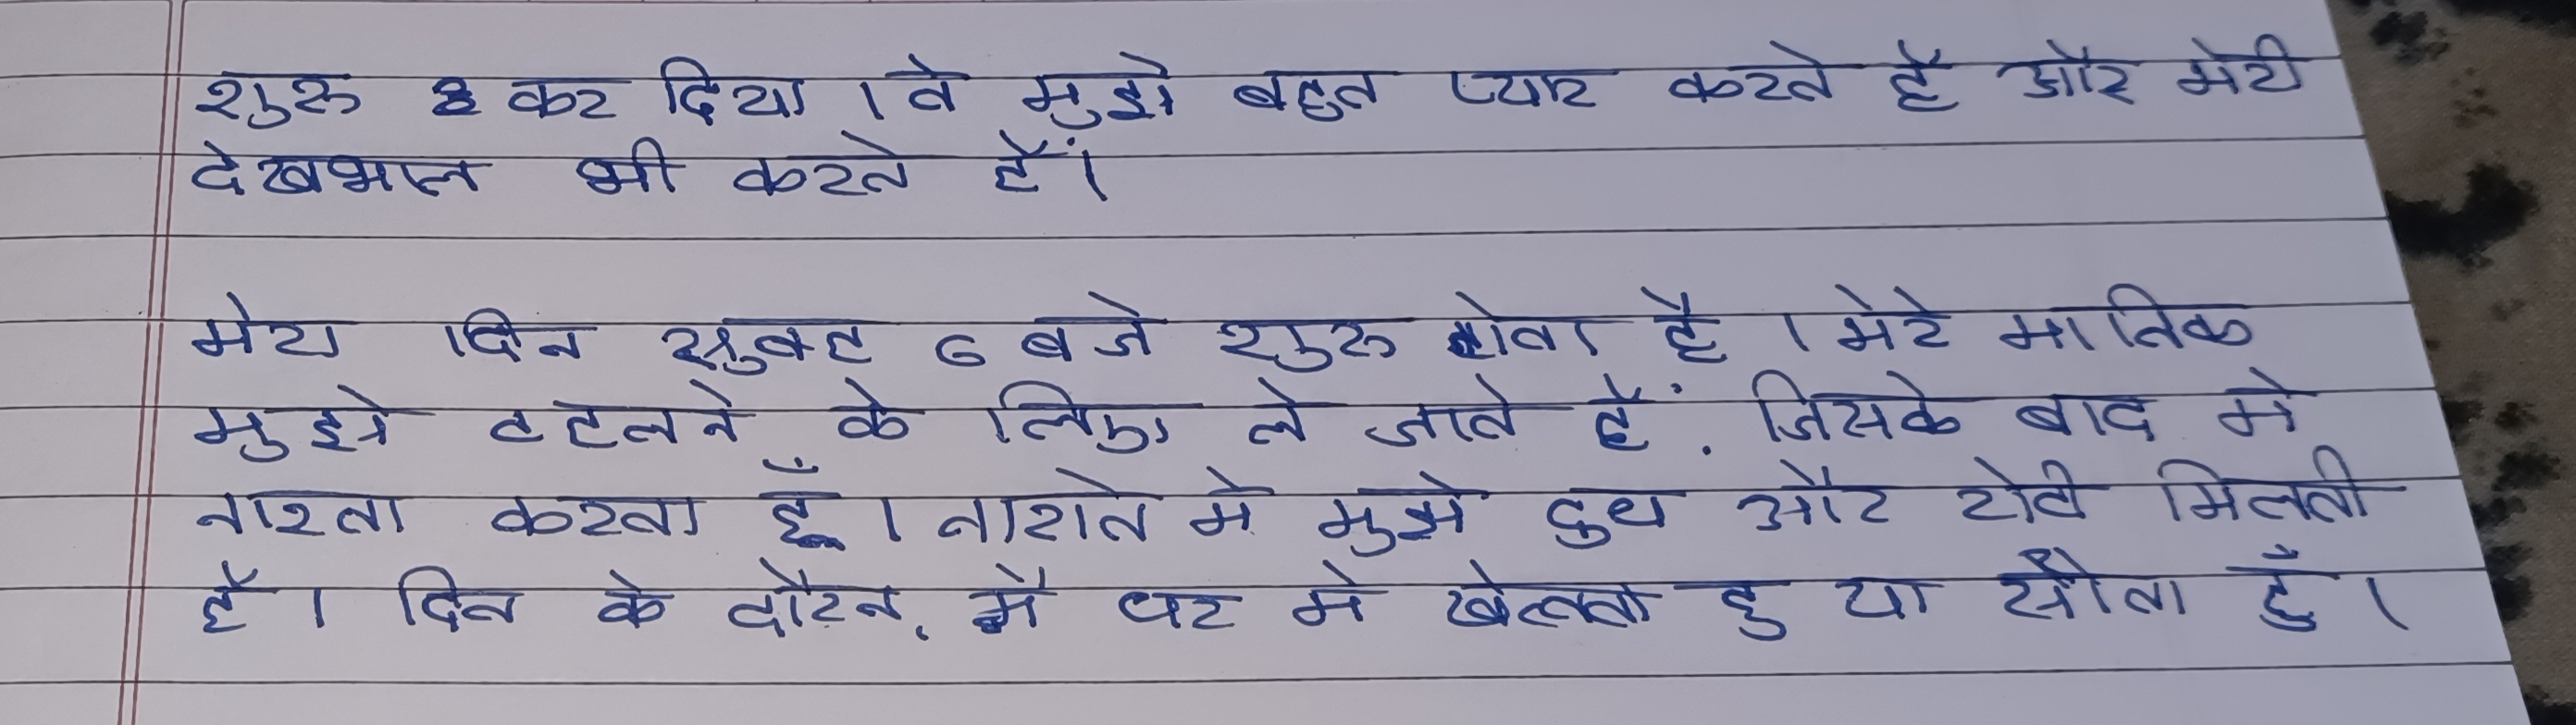 शुरू कर दिया । वे मुझे बहुत प्यार करते है और मेरी
देखभाल भी करते हैं।
मेरा दिन सुबह 6 बजे शुरू होता है । मेरे मालिक
मुझे टहलने के लिए ले जाते हैं. जिसके बाद मे
नाश्ता करता हूँ । नाशते मे मुझे दुध और रोटी मिलती
है । दिन के दौरन, मै घर मे खेलता हु या सोता हूँ ।